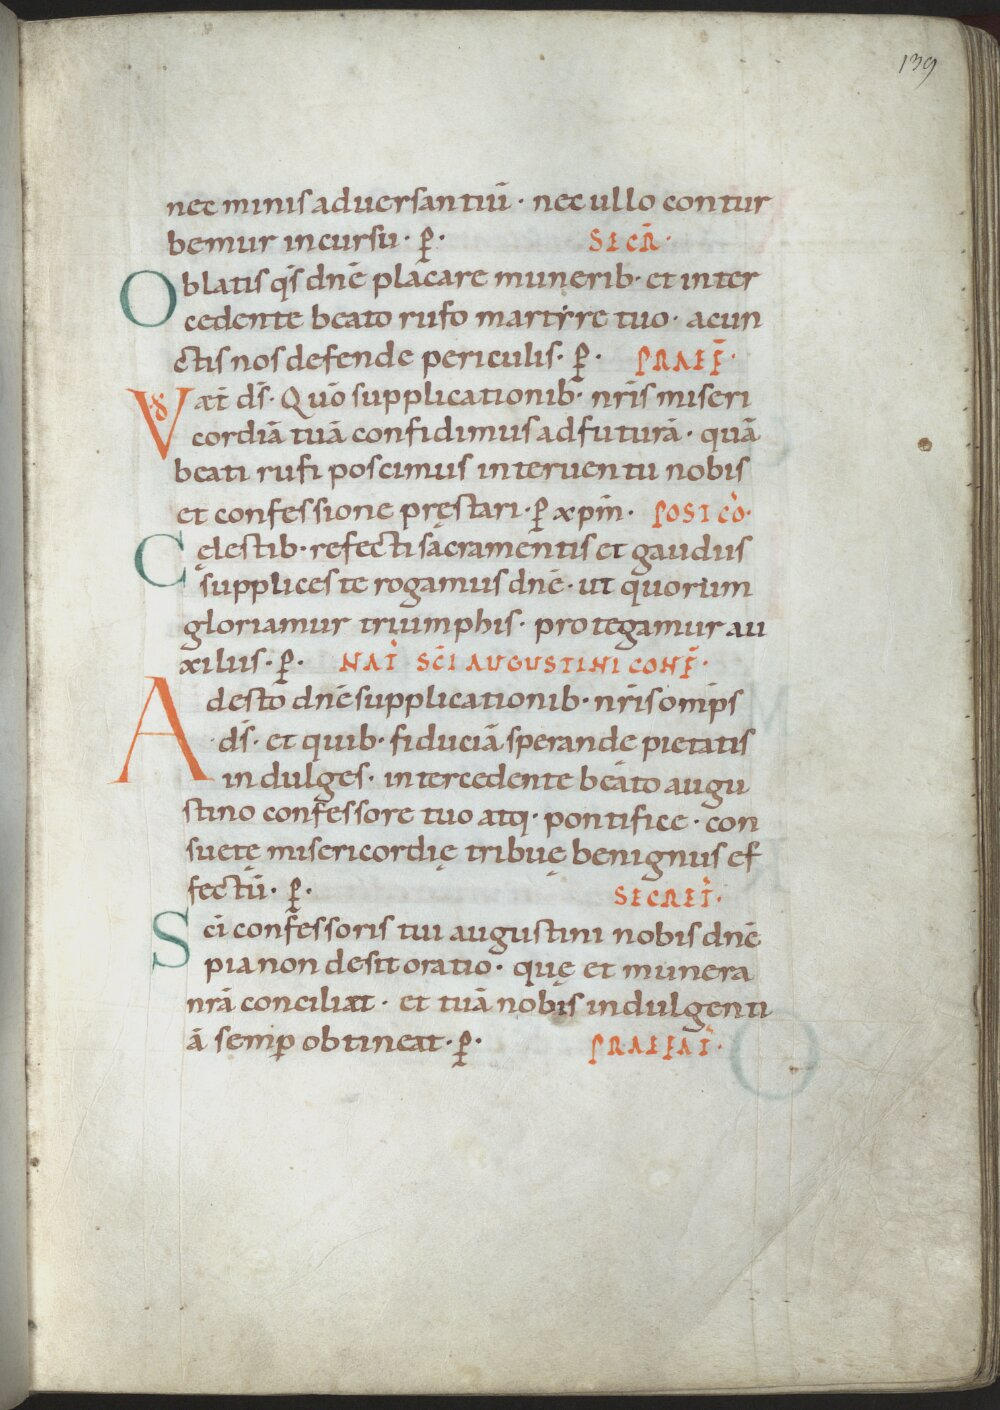 139
nec minis aduersantiū · nec ullo contur
bemur incursu · ꝑ · SECR̄ ·
Oblatis qs̄ dnē placare munerib· et inter
cedente beato rufo martyre tuo · acun
ctis nos defende periculis · ꝑ · PRAEF̄ ·
VD aet̄ ds̄ · Quō supplicationib· nr̄is miseri
cordiā tuā confidimus adfuturā · quā
beati rufi poscimus interuentu nobis
et confessione pręstari · ꝑ xpm̄ · POST CŌ ·
Cęlestib· refecti sacramentis et gaudiis
supplices te rogamus dnē · ut quorum
gloriamur triumphis · protegamur au
xiliis · ꝑ · NAT̄ SC̄I AUGUSTINI CONF̄ ·
Adesto dnē supplicationib· nr̄is omp̄s
ds̄ · et quib· fiduciā sperande pietatis
indulges · intercedente beato augu
stino confessore tuo atq· pontifice · con
suetę misericordię tribuę benignus ef
fectū · ꝑ · SECRET̄ ·
Sc̄i confessoris tui augustini nobis dnē
pia non desit oratio · quę et munera
nrā conciliat · et tuā nobis indulgenti
ā semꝑ obtineat · ꝑ · PRAEFAT̄ ·